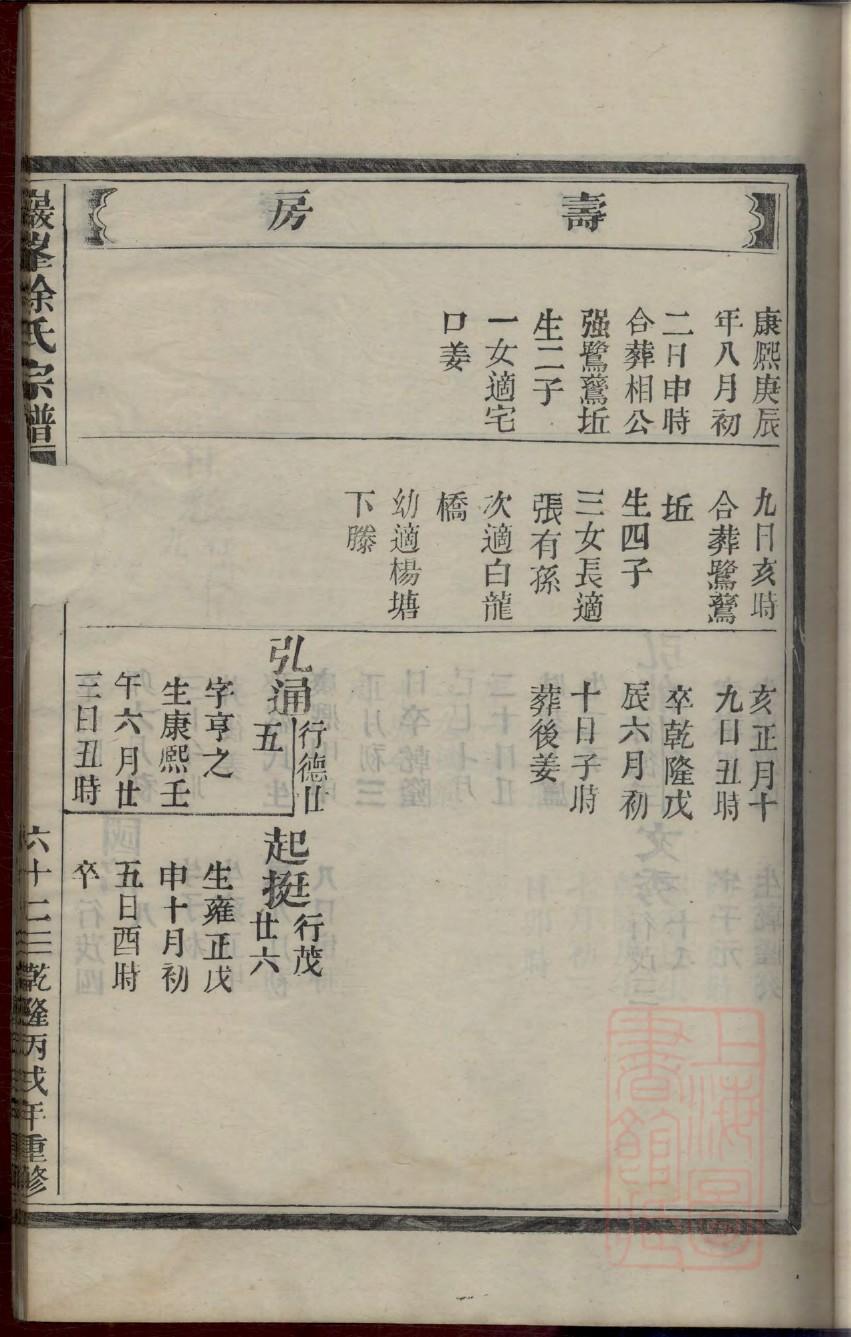 壽房
康熙庚辰
年八月初
二日申時
合葬相公
强鷺鶿坵
生二子
一女適宅
口姜
九日亥時
合葬鷺鶿
坵
生四子
三女長適
張有孫
次適白龍
橋
幼適楊塘
下滕
亥正月十
九日丑時
卒乾隆戊
辰六月初
十日子時
葬後姜
弘通
行德廿
五
字亨之
生康熙壬
午六月廿
三日丑時
起挺
行茂
廿六
生雍正戊
申十月初
五日酉時
卒
巖峯徐氏宗譜
六十二
乾隆丙戌年重修
上海圖
書館藏